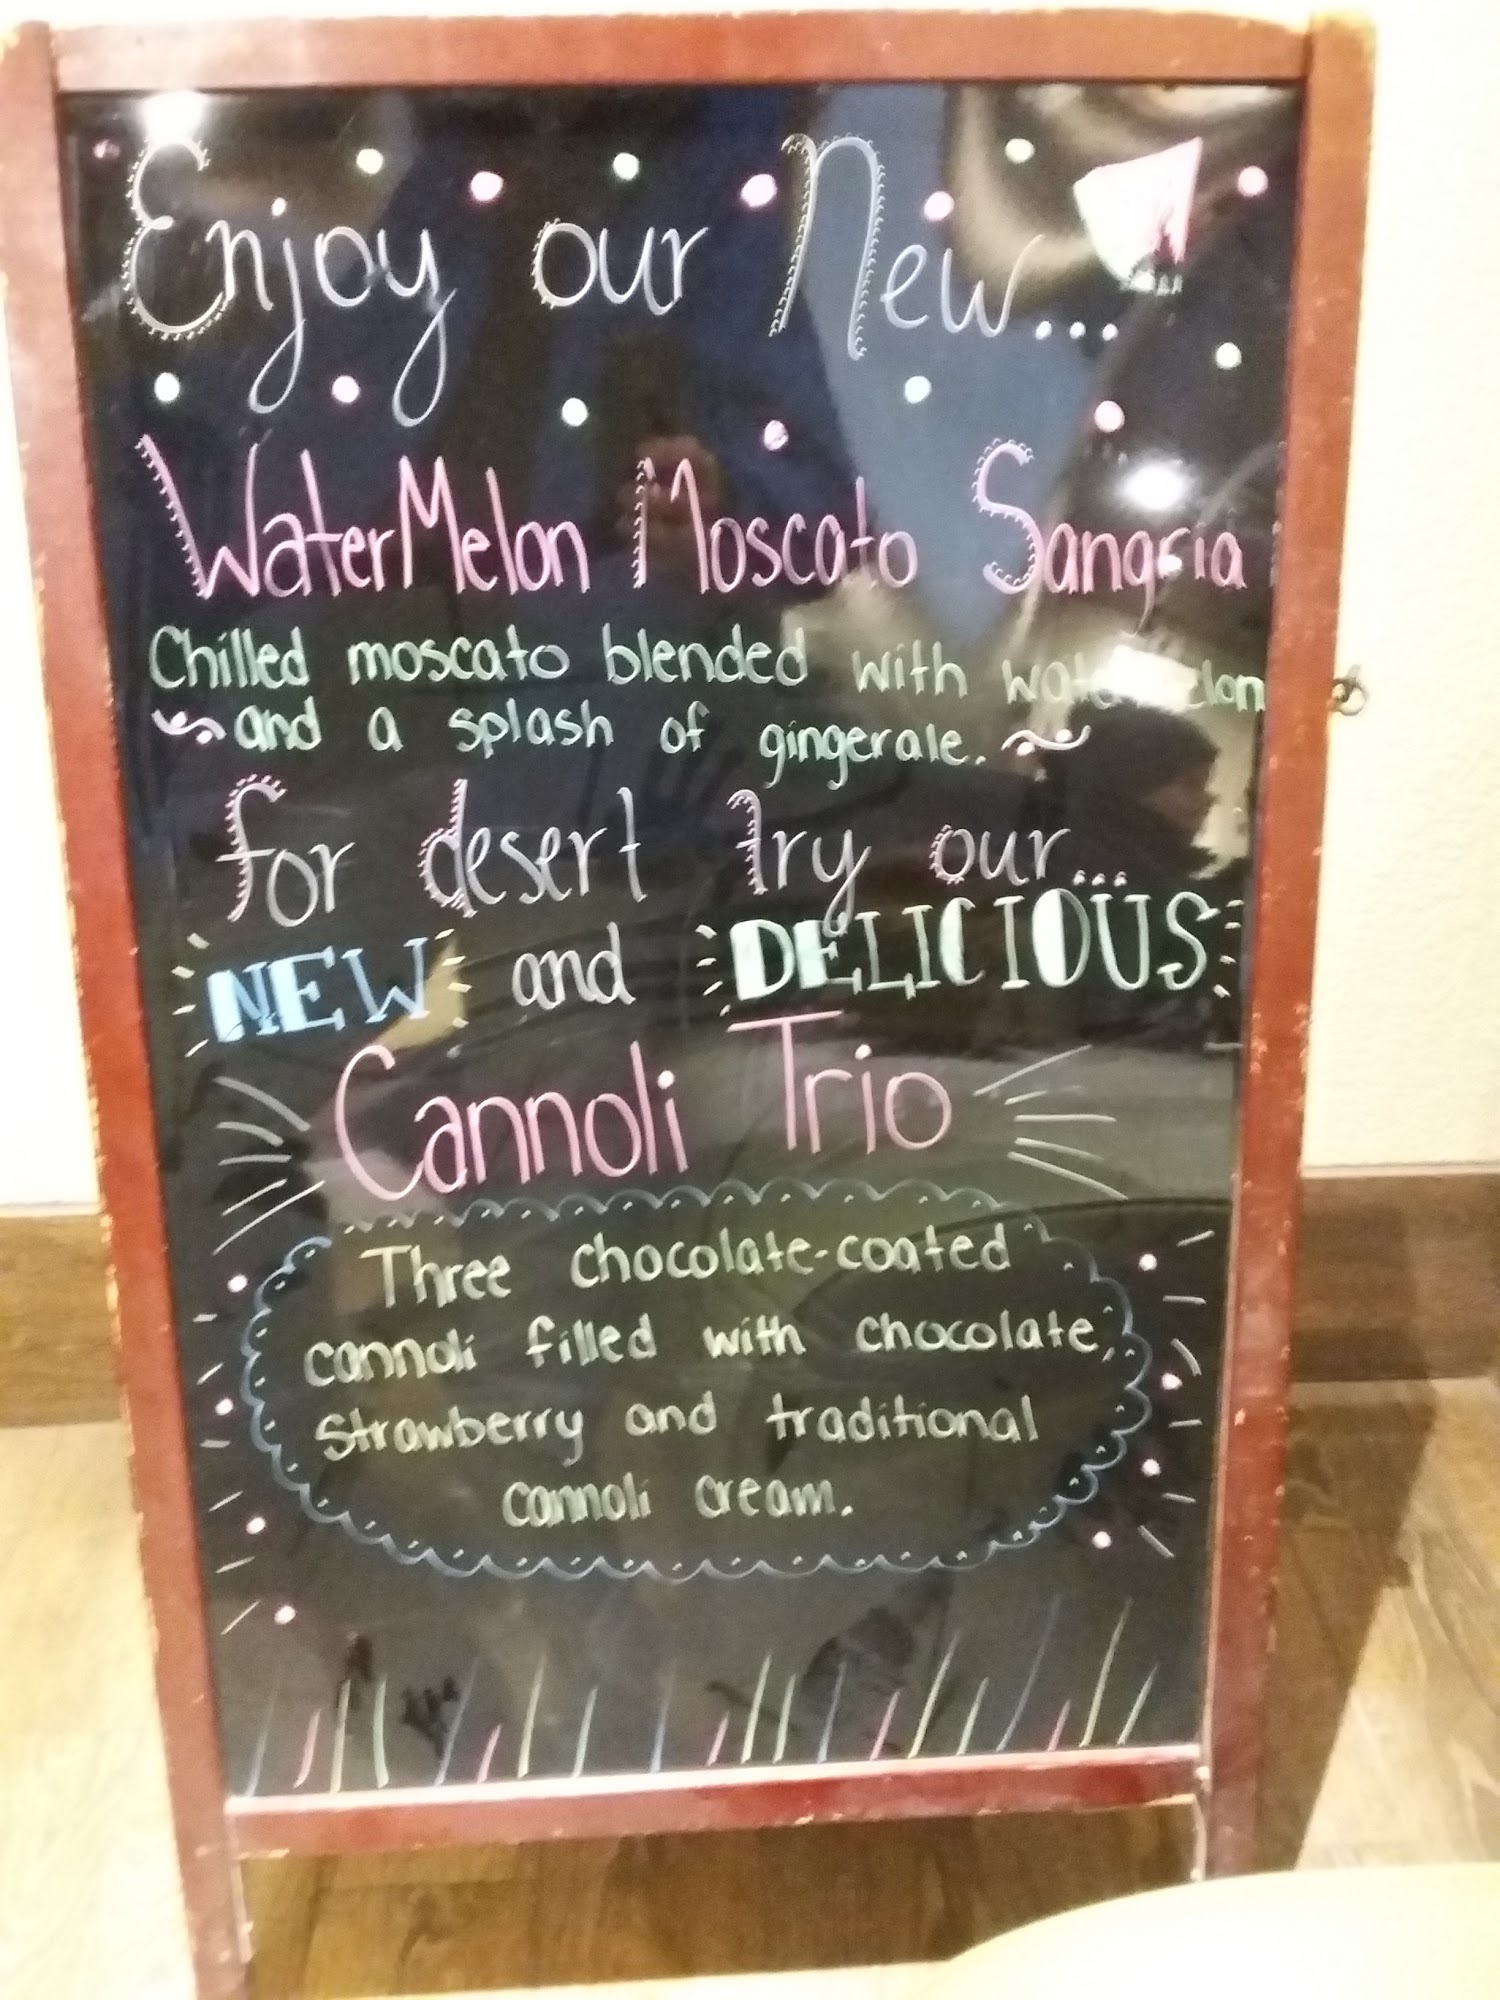 Enjoy our New...
WaterMelon Moscato Sangria
Chilled moscato blended with watermelon
and a splash of gingerale.
for desert try our...
NEW and DELICIOUS
Cannoli Trio
Three chocolate-coated
cannoli filled with chocolate,
strawberry and traditional
cannoli cream.